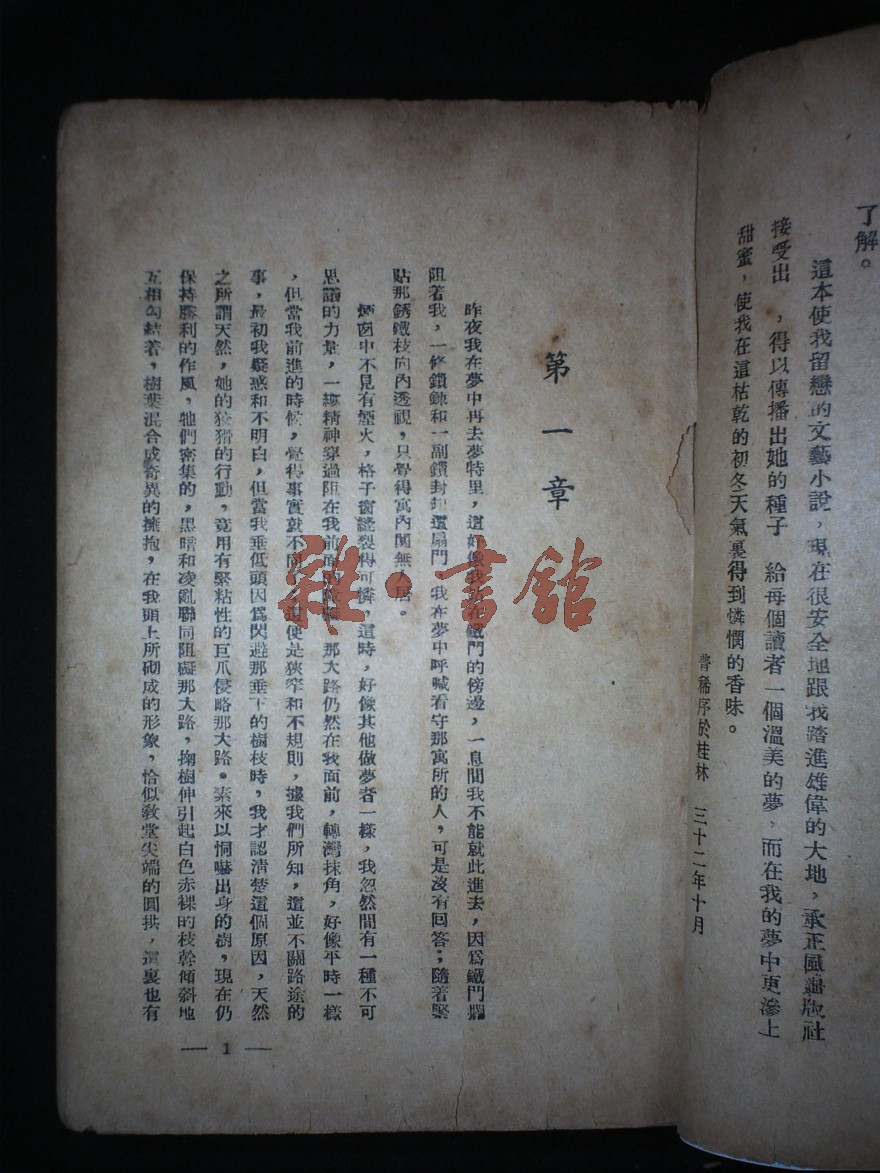 了解。
這本使我留戀的文藝小說，現在很安全地跟我踏進雄偉的大地，承正風出版社
接受出　，得以傳播出她的種子　給每個讀者一個溫美的夢，而在我的夢中更滲上
甜蜜，使我在這枯乾的初冬天氣裏得到憐憫的香味。
稀序於桂林　三十二年十月
第一章
昨夜我在夢中再去夢特里，這好像我站在鐵門的傍邊，一息間我不能就此進去，因爲鐵門攔
阻着我，一條鎖鍊和一副鎖封　這扇門　我在夢中呼喊看守那寓所的人，可是沒有回答；隨着緊
貼那銹鐵枝向內透視，只覺得寓內闃無人居。
煙囪中不見有煙火，格子窗縫裂得可憐，這時，好像其他做夢者一樣，我忽然間有一種不可
思議的力量，一縷精神穿過阻在我前面的　那大路仍然在我面前，轉灣抹角，好像平時一樣
，但當我前進的時候，覺得事實就不同　這便是狹窄和不規則，據我們所知，這並不關路途的
事，最初我疑惑和不明白，但當我垂低頭因爲閃避那垂下的樹枝時，我才認清楚這個原因，天然
之所謂天然，她的狡猾的行動，竟用有緊粘性的巨爪侵略那大路。素來以恫嚇出身的樹，現在仍
保持勝利的作風，牠們密集的，黑暗和凌亂聯同阻礙那大路，掬樹伸引起白色赤裸的枝幹傾斜地
互相勾結着，樹葉混合成奇異的擁抱，在我頭上所砌成的形象，恰似教堂尖端的圓拱，這裏也有
— 1 —
雜·書館